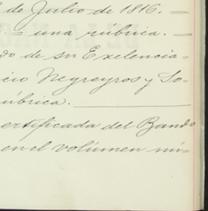 de Julio de 1816.
= una rúbrica.
do de su Exelencia
cio Negreyros y So-
úbrica.
ertificada del Bando
en el volúmen nú-